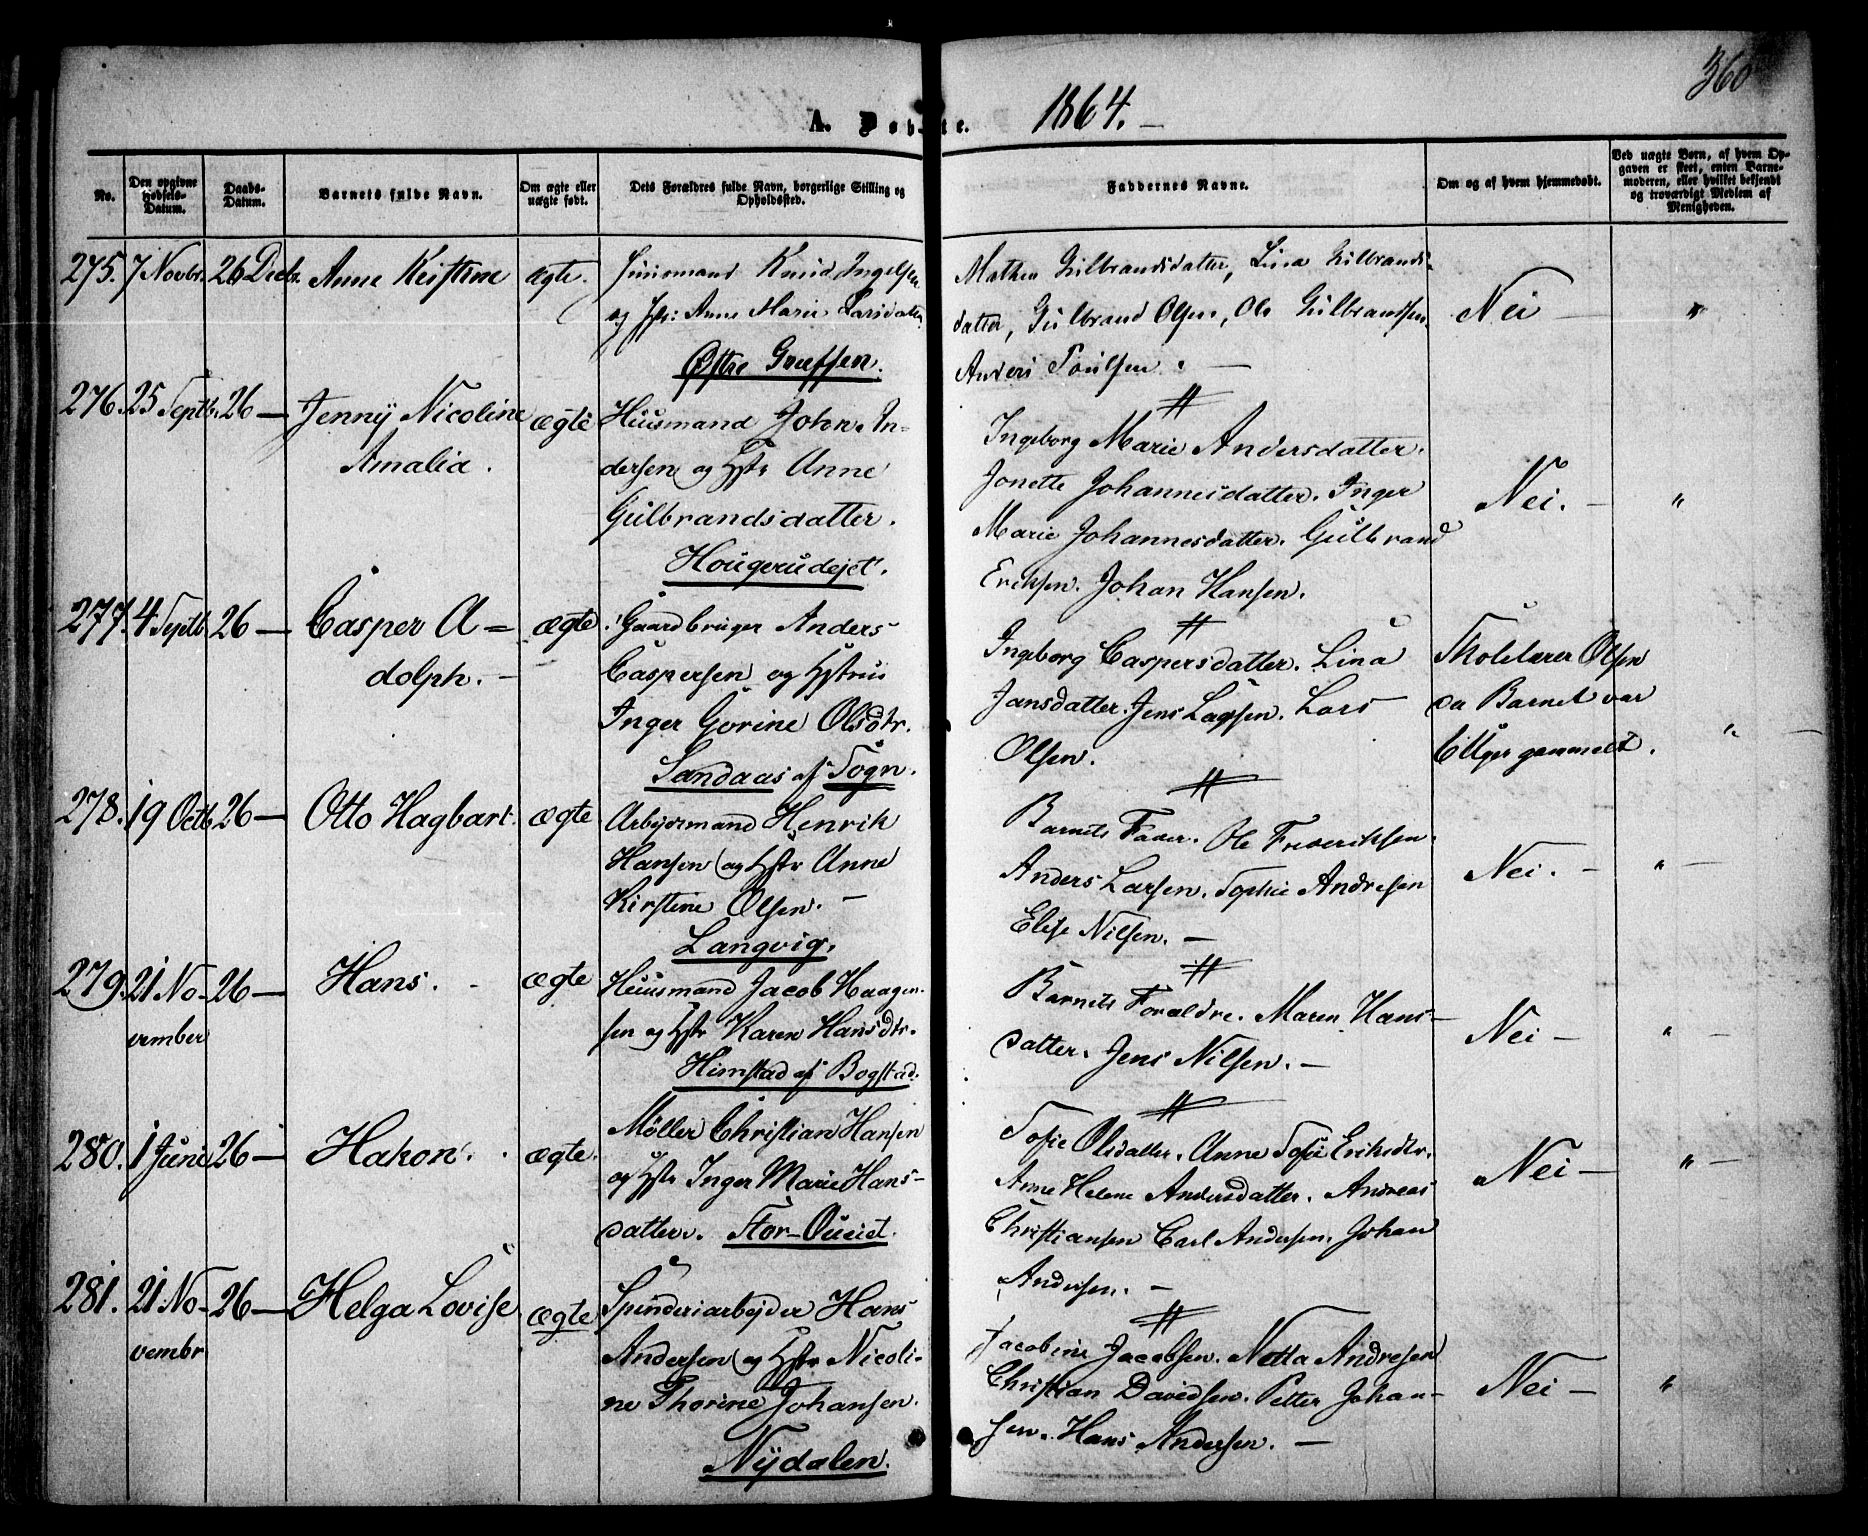 360
A. Døbte. 1864. —
No.
Den opgivne Fødsels-Datum.
Daabs-Datum.
Barnets fulde Navn.
Om ægte eller uægte født.
Dets Forældres fulde Navn, borgerlige Stilling og Opholdssted.
Faddernes Navne.
Om og af hvem hjemmedøbt.
Ved uægte Børn, af hvem Opgaven er skeet, enten Barnemoderen, eller hvilket bekjendt og troværdigt Medlem af Menigheden.
275. 7 Novbr. 26 Decbr. Anne Kristine ægte.
Huusmand Knud Ingelsen
og Hstr: Anne Marie Larsdatter
Østre Grefsen.
Mathea Gulbrandsdatter, Lina Gulbrands-
datter, Gulbrand Olsen, Ole Gulbrandsen,
Anders Poulsen. —
Nei — "
276. 25 Septb. 26 — Jenny Nicoline
Amalia.
ægte
Huusmand Johan An-
dersen og Hstr Anne
Gulbrandsdatter.
Hougerudejet.
Ingeborg Marie Andersdatter.
Jonette Johannesdatter. Inger
Marie Johannesdatter. Gulbrand
Eriksen. Johan Hansen.
Nei. — "
277. 4 Septb. 26 — Casper A=
dolph. —
ægte.
Gaardbruger Anders
Caspersen og Hstru
Inger Gorine Olsdtr.
Sandaas af Sogn.
Ingeborg Caspersdatter. Lina
Jansdatter. Jens Larsen. Lars
Olsen.
Skolelærer Olsen
da Barnet var
Uger gammelt. "
278. 19 Octb 26 — Otto Hagbart. ægte
Arbejdsmand Henrik
Hansen og Hstr Anne
Kirstine Olsen. —
Langvig.
Barnets Fader. Ole Frederiksen.
Anders Larsen. Sophie Andresen
Elise Nilsen. —
Nei. — " —
279. 21 No-
vember
26 — Hans. ægte
Huusmand Jacob Haagen-
sen og Hstr Karen Hansdtr.
Himstad af Bogstad.
Barnets Forældre. Maren Hans-
datter. Jens Nilsen. —
Nei — " —
280. 1 Juni 26 — Hakon. ægte.
Møller Christian Hansen
og Hstr Inger Marie Hans-
datter. Stor-Øueiet.
Sofie Olsdatter. Anne Sofie Eriksdtr.
Anne Helene Andersdatter. Andreas
Christiansen Carl Andersen. Johan
Andersen. —
Nei — " —
281. 21 No-
vembr
26 — Helga Lovise ægte
Spinderiarbejder Hans
Andersen og Hstr Nicoli-
ne Thorine Johansen.
Nydalen.
Jacobine Jacobsen. Netta Andresen
Christian Davidsen. Petter Johan-
sen. Hans Andersen. —
Nei — "